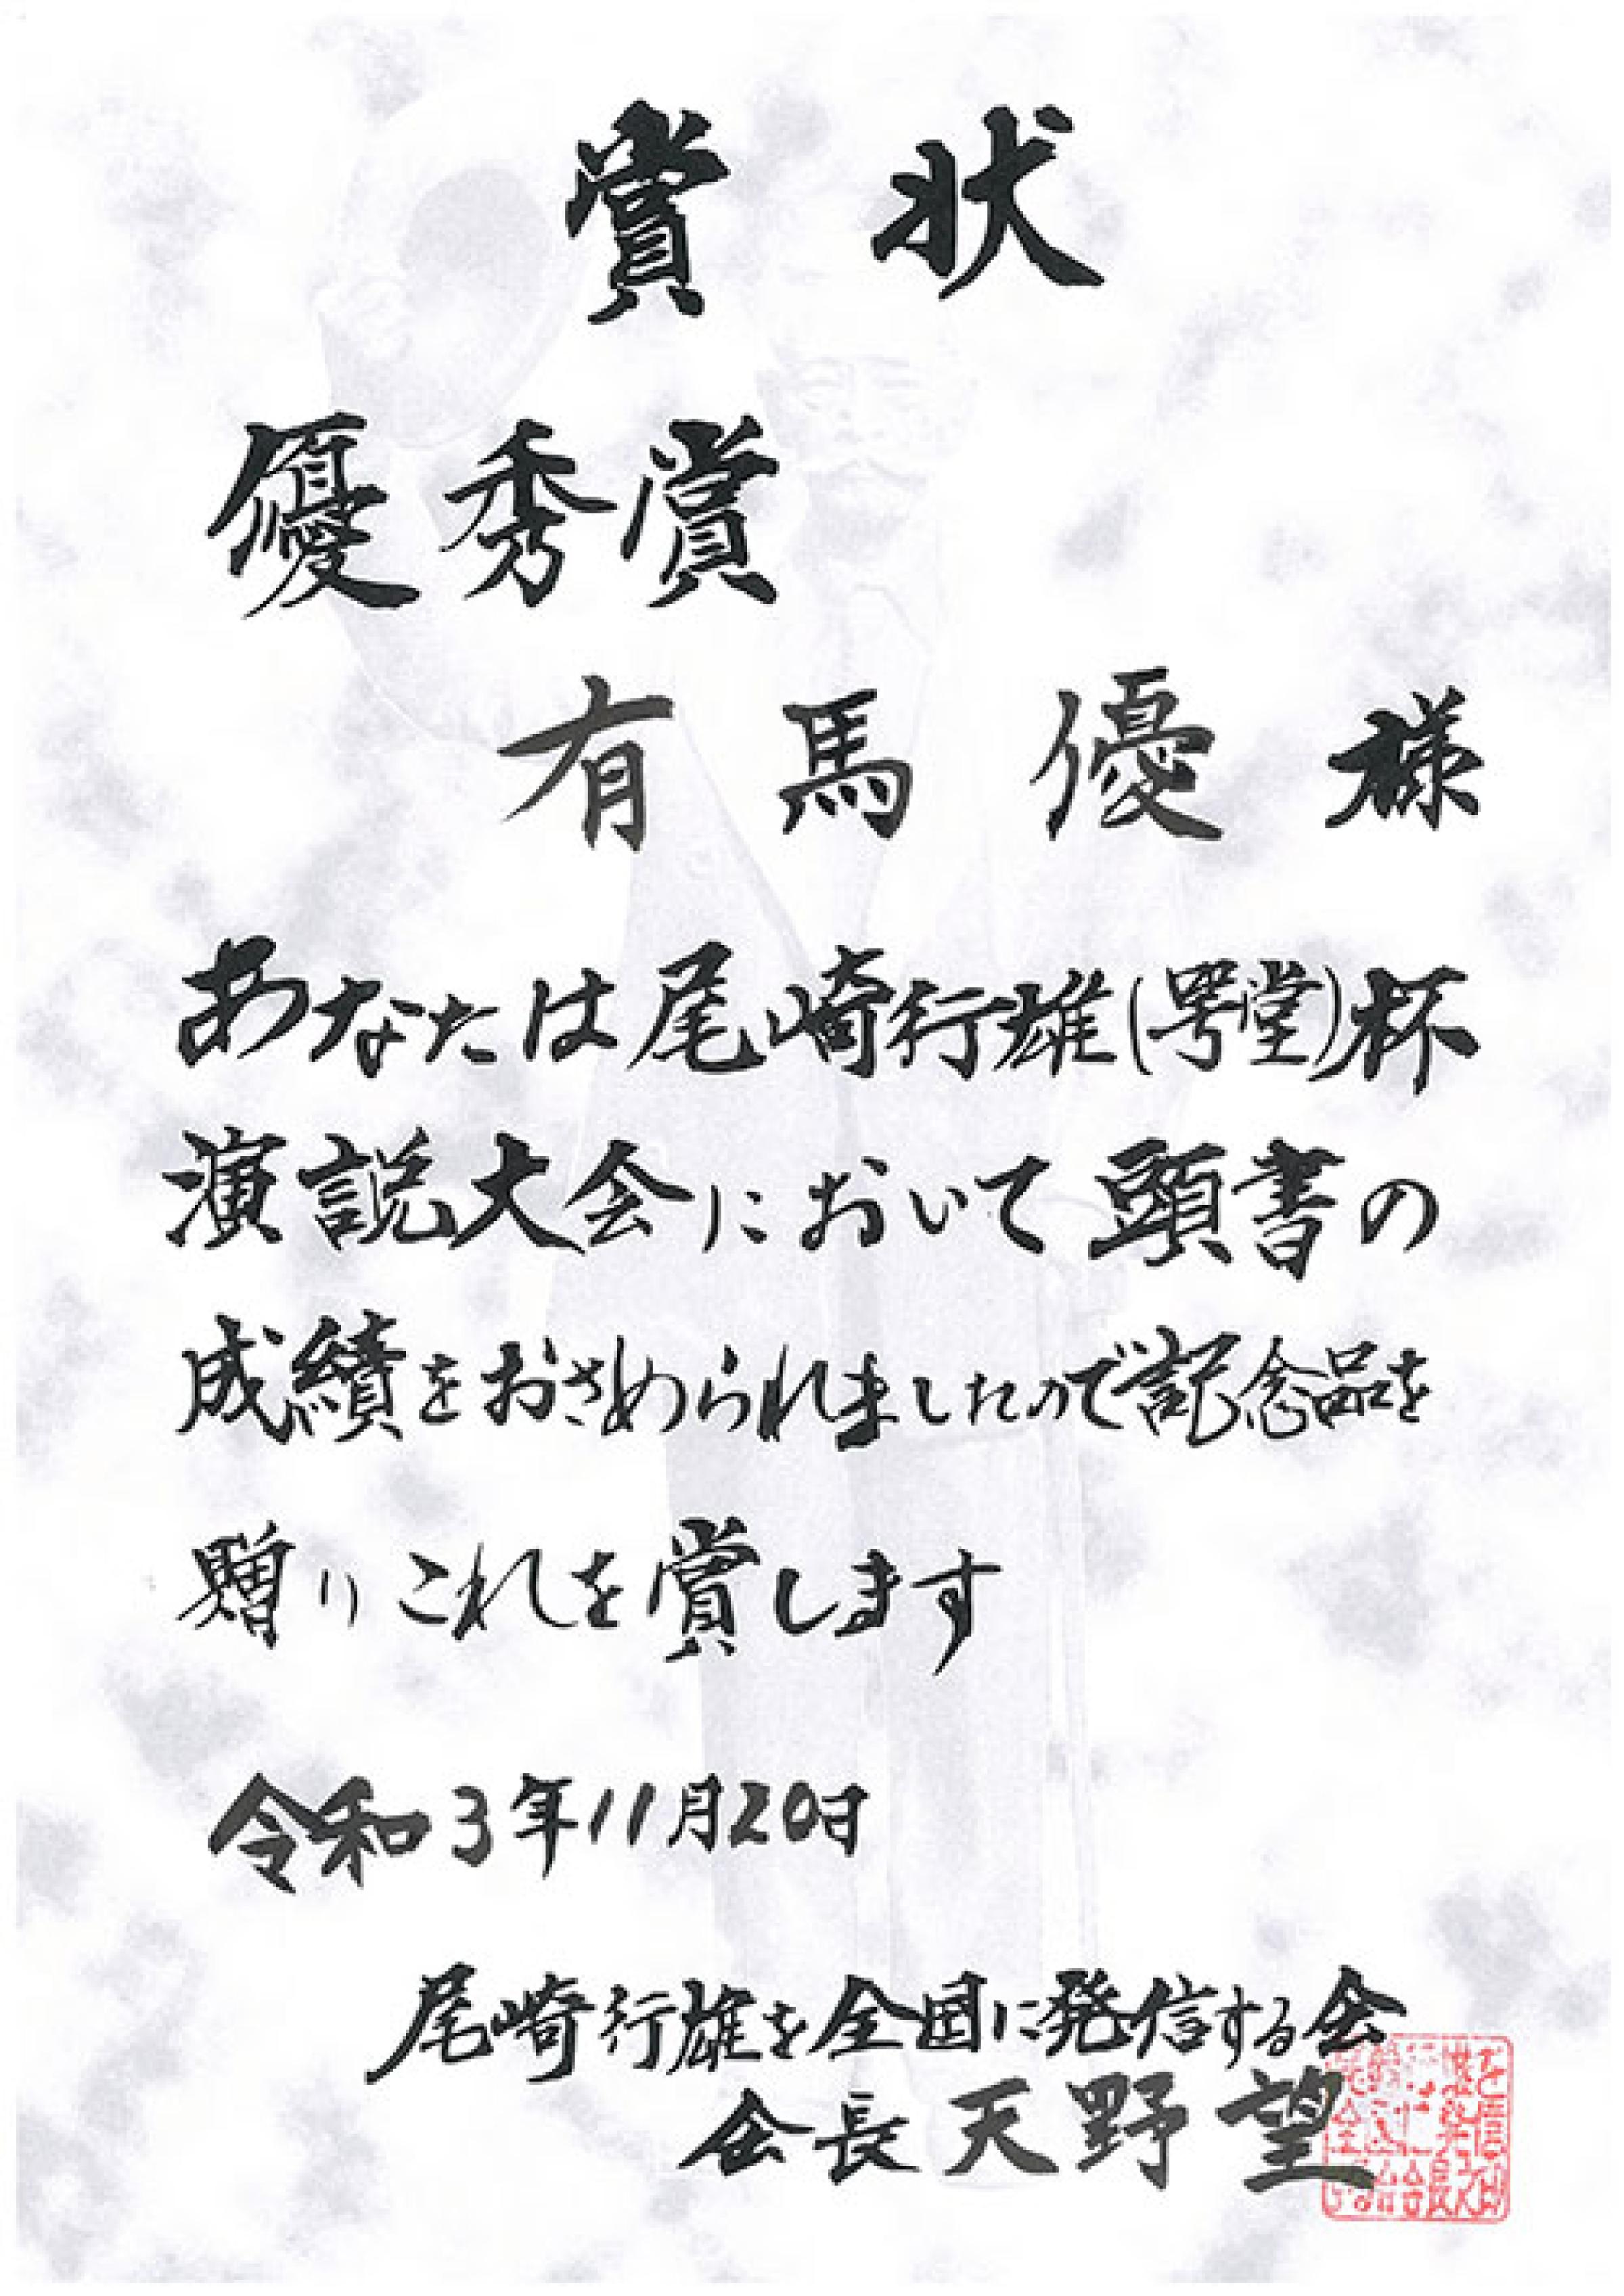 賞状
優秀賞
有馬優様
あなたは尾崎行雄(咢堂)杯
演説大会において頭書の
成績をおさめられましたので記念品を
贈りこれを賞します
令和3年11月20日
尾崎行雄を全国に発信する会
会長天野望